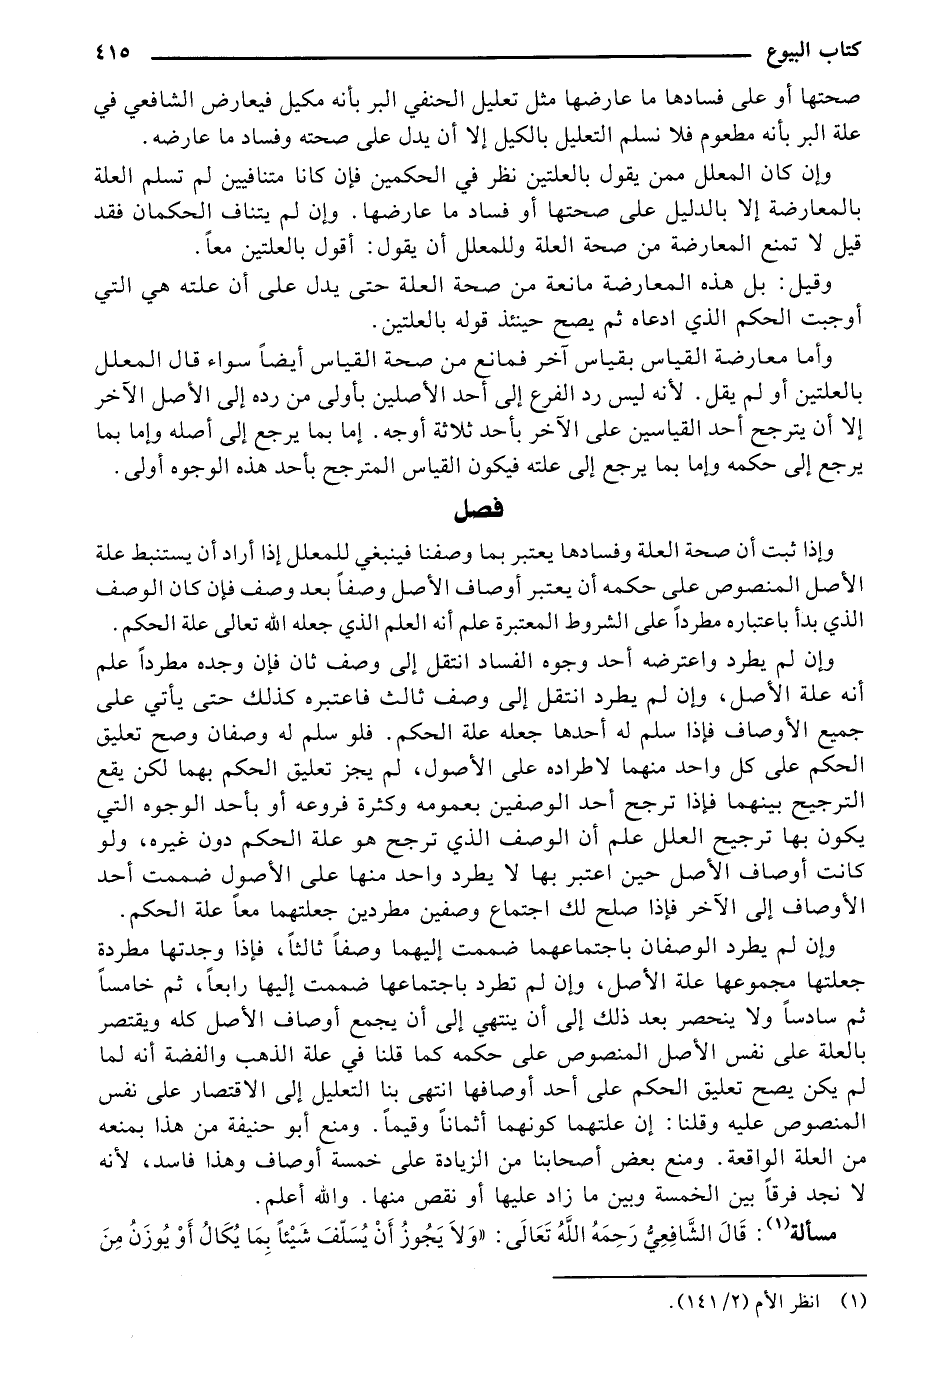 كتاب البيوع ٤١٥
صحتها أو على فسادها ما عارضها مثل تعليل الحنفي البر بأنه مكيل فيعارض الشافعي في
علة البر بأنه مطعوم فلا نسلم التعليل بالكيل إلا أن يدل على صحته وفساد ما عارضه.
وإن كان المعلل ممن يقول بالعلتين نظر في الحكمين فإن كانا متنافيين لم تسلم العلة
بالمعارضة إلا بالدليل على صحتها أو فساد ما عارضها. وإن لم يتناف الحكمان فقد
قيل لا تمنع المعارضة من صحة العلة وللمعلل أن يقول: أقول بالعلتين معاً.
وقيل: بل هذه المعارضة مانعة من صحة العلة حتى يدل على أن علته هي التي
أوجبت الحكم الذي ادعاه ثم يصح حينئذ قوله بالعلتين.
وأما معارضة القياس بقياس آخر فمانع من صحة القياس أيضاً سواء قال المعلل
بالعلتين أو لم يقل. لأنه ليس رد الفرع إلى أحد الأصلين بأولى من رده إلى الأصل الآخر
إلا أن يترجح أحد القياسين على الآخر بأحد ثلاثة أوجه. إما بما يرجع إلى أصله وإما بما
يرجع إلى حكمه وإما بما يرجع إلى علته فيكون القياس المترجح بأحد هذه الوجوه أولى.
فصل
وإذا ثبت أن صحة العلة وفسادها يعتبر بما وصفنا فينبغي للمعلل إذا أراد أن يستنبط علة
الأصل المنصوص على حكمه أن يعتبر أوصاف الأصل وصفاً بعد وصف فإن كان الوصف
الذي بدأ باعتباره مطرداً على الشروط المعتبرة علم أنه العلم الذي جعله الله تعالى علة الحكم.
وإن لم يطرد واعترضه أحد وجوه الفساد انتقل إلى وصف ثان فإن وجده مطرداً علم
أنه علة الأصل، وإن لم يطرد انتقل إلى وصف ثالث فاعتبره كذلك حتى يأتي على
جميع الأوصاف فإذا سلم له أحدها جعله علة الحكم. فلو سلم له وصفان وصح تعليق
الحكم على كل واحد منهما لاطراده على الأصول، لم يجز تعليق الحكم بهما لكن يقع
الترجيح بينهما فإذا ترجح أحد الوصفين بعمومه وكثرة فروعه أو بأحد الوجوه التي
يكون بها ترجيح العلل علم أن الوصف الذي ترجح هو علة الحكم دون غيره، ولو
كانت أوصاف الأصل حين اعتبر بها لا يطرد واحد منها على الأصول ضممت أحد
الأوصاف إلى الآخر فإذا صلح لك اجتماع وصفين مطردين جعلتهما معاً علة الحكم.
وإن لم يطرد الوصفان باجتماعهما ضممت إليهما وصفاً ثالثاً، فإذا وجدتها مطردة
جعلتها مجموعها علة الأصل، وإن لم تطرد باجتماعها ضممت إليها رابعاً، ثم خامساً
ثم سادساً ولا ينحصر بعد ذلك إلى أن ينتهي إلى أن يجمع أوصاف الأصل كله ويقتصر
بالعلة على نفس الأصل المنصوص على حكمه كما قلنا في علة الذهب والفضة أنه لما
لم يكن يصح تعليق الحكم على أحد أوصافها انتهى بنا التعليل إلى الاقتصار على نفس
المنصوص عليه وقلنا: إن علتهما كونهما أثماناً وقيماً. ومنع أبو حنيفة من هذا بمنعه
من العلة الواقعة. ومنع بعض أصحابنا من الزيادة على خمسة أوصاف وهذا فاسد، لأنه
لا نجد فرقاً بين الخمسة وبين ما زاد عليها أو نقص منها. والله أعلم.
مسألة(١): قَالَ الشَّافِعِيُّ رَحِمَهُ اللَّهُ تَعَالَى: «وَلاَ يَجُوزُ أَنْ يُسَلِّفَ شَيْئاً بِمَا يُكَالُ أَوْ يُوزَنُ مِنَ
(١) انظر الأم (٢/ ١٤١).